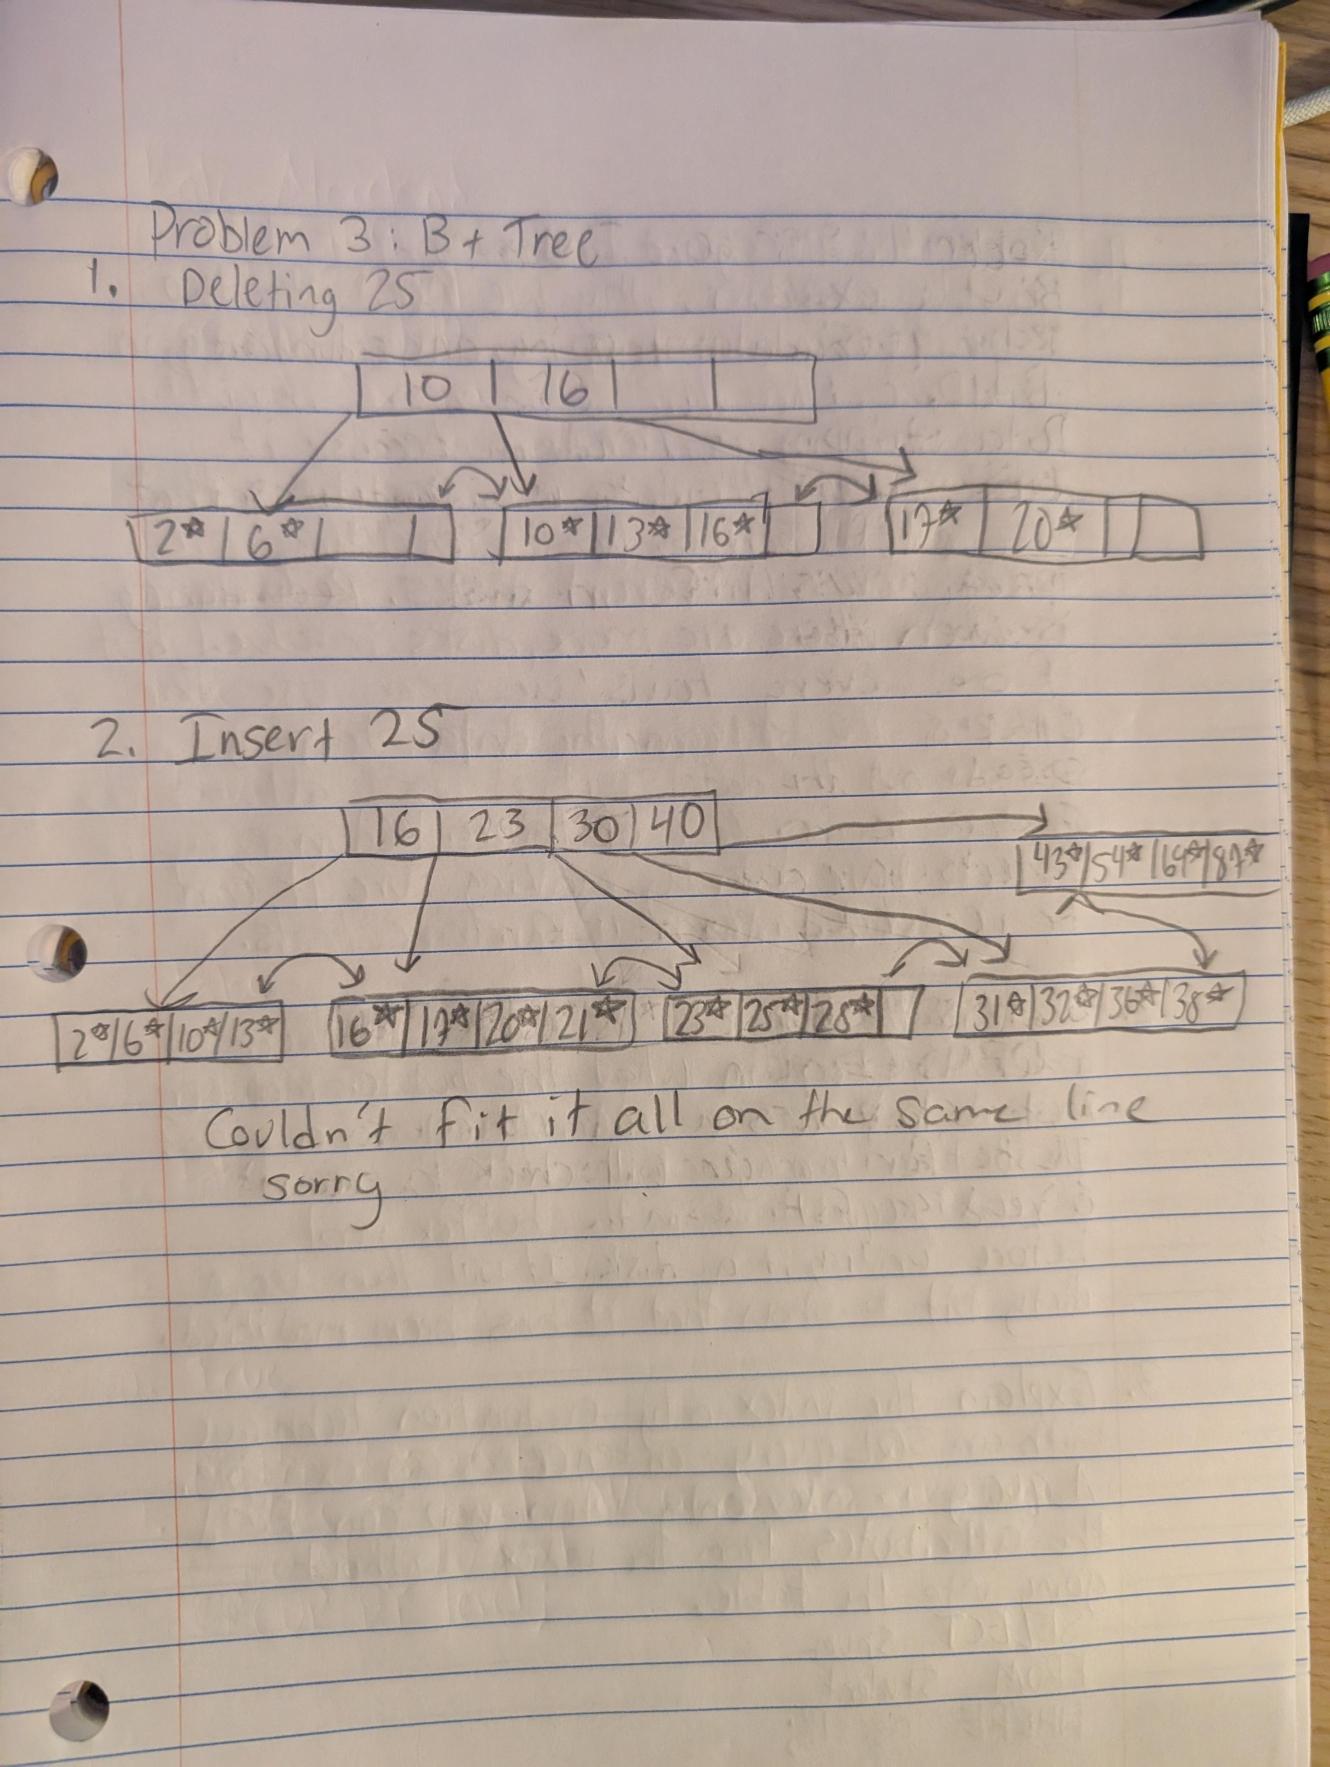 Problem 3: B+ Tree
1. Deleting 25
10 | 16
2* | 6* 10* | 13* | 16* 17* | 20*
2. Insert 25
16 | 23 | 30 | 40
43* | 54* | 64* | 87*
2* | 6* | 10* | 13* 16* | 17* | 20* | 21* 23* | 25* | 28* 31* | 32* | 36* | 38*
Couldn't fit it all on the same line
sorry